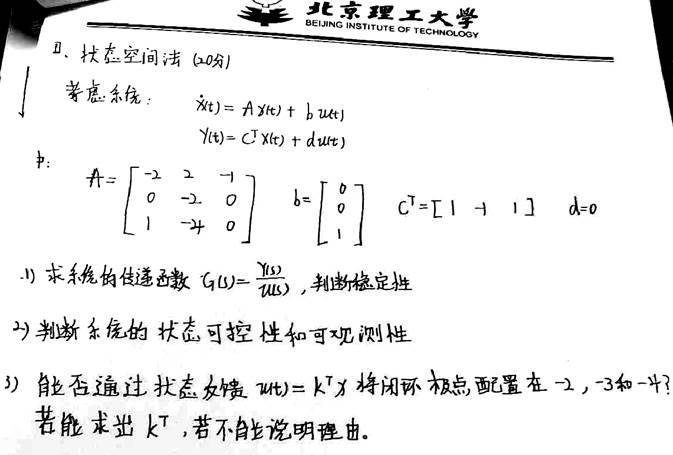 北京理工大学
BEIJING INSTITUTE OF TECHNOLOGY
四、状态空间法 (20分)
考虑系统:
ẋ(t) = Ax(t) + bu(t)
y(t) = Cᵀx(t) + du(t)
中:
A = [-2 2 -1; 0 -2 0; 1 -4 0] b = [0; 0; 1] Cᵀ = [1 -1 1] d=0
1) 求系统的传递函数 G(s) = Y(s)/U(s) , 判断稳定性
2) 判断系统的状态可控性和可观测性
3) 能否通过状态反馈 u(t) = kᵀx 将闭环极点配置在 -2, -3和-4?
若能求出 kᵀ, 若不能说明理由。